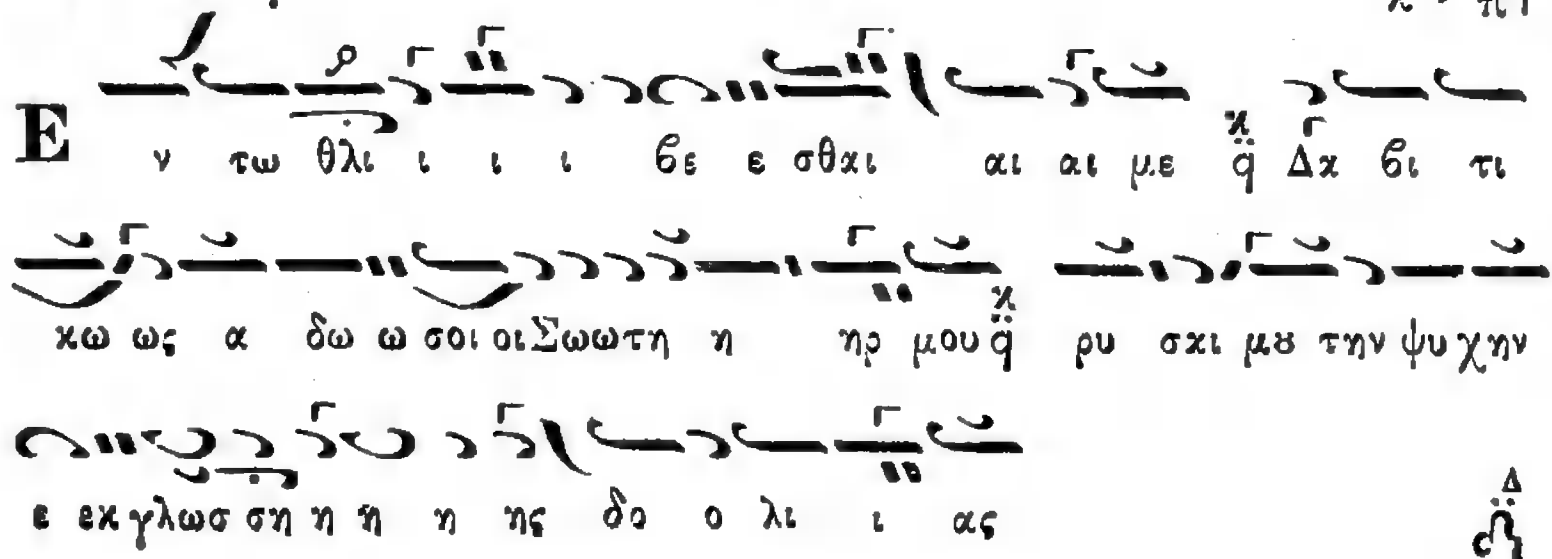 Ε ν τω θλι ι ι ι βε ε σθαι αι αι με Δα βι τι
κω ως α δω ω σοι οι Σω ω τη η ηρ μου ρυ σαι μȣ την ψυ χην
ε εκ γλωσ ση η η η ης δο ο λι ι ας